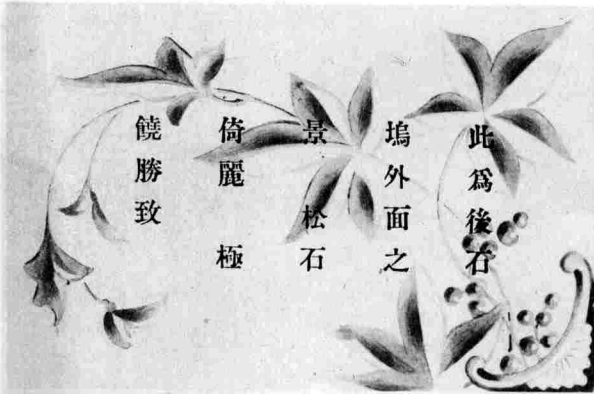 此爲後石
塢外面之
景 松石
倚麗 極
饒勝致